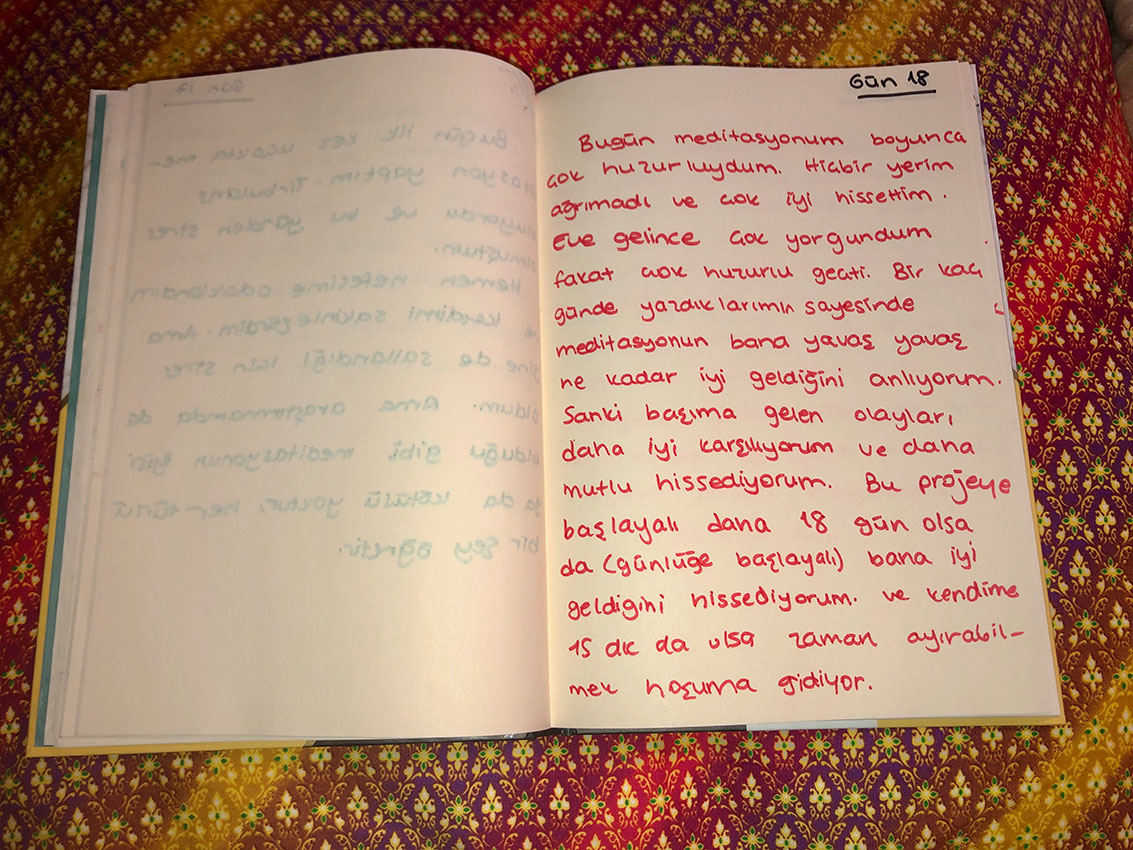 Gün 18
Bugün meditasyonum boyunca
çok huzurluydum. Hiçbir yerim
ağrımadı ve çok iyi hissettim.
Eve gelince çok yorgundum
fakat çok huzurlu geçti. Bir kaç
günde yazdıklarımın sayesinde
meditasyonun bana yavaş yavaş
ne kadar iyi geldiğini anlıyorum.
Sanki başıma gelen olayları
daha iyi karşılıyorum ve daha
mutlu hissediyorum. Bu projeye
başlayalı daha 18 gün olsa
da (günlüğe başlayalı) bana iyi
geldiğini hissediyorum. ve kendime
15 dk da olsa zaman ayırabil-
mek hoşuma gidiyor.